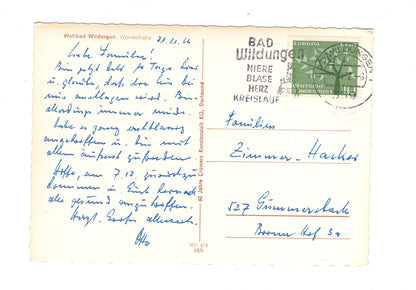 Weltbad Wildungen. Wandelhalle
21.11.62
Liebe Familien!
Bin jetzt bald 10 Tage hier
u. glaube, daß die Kur bei
mir anschlagen wird. Bin
allerdings immer müde.
Habe es ganz
angetroffen u. bin mit
allem äußerst zufrieden.
Hoffe, am 7.12. zurückzu
kommen u. Euch
alle gesund anzutreffen.
Herzl. Grüße allerseits.
Otto
60 Jahre Cramers Kunstanstalt KG, Dortmund
BAD
Wildungen
NIERE
BLASE
HERZ
KREISLAUF
EUROPA
DEUTSCHE
BUNDESPOST
WILDUNGEN
Familien
Zimmer - Hacker
527 Gummersbach
Bonner Hof 3a